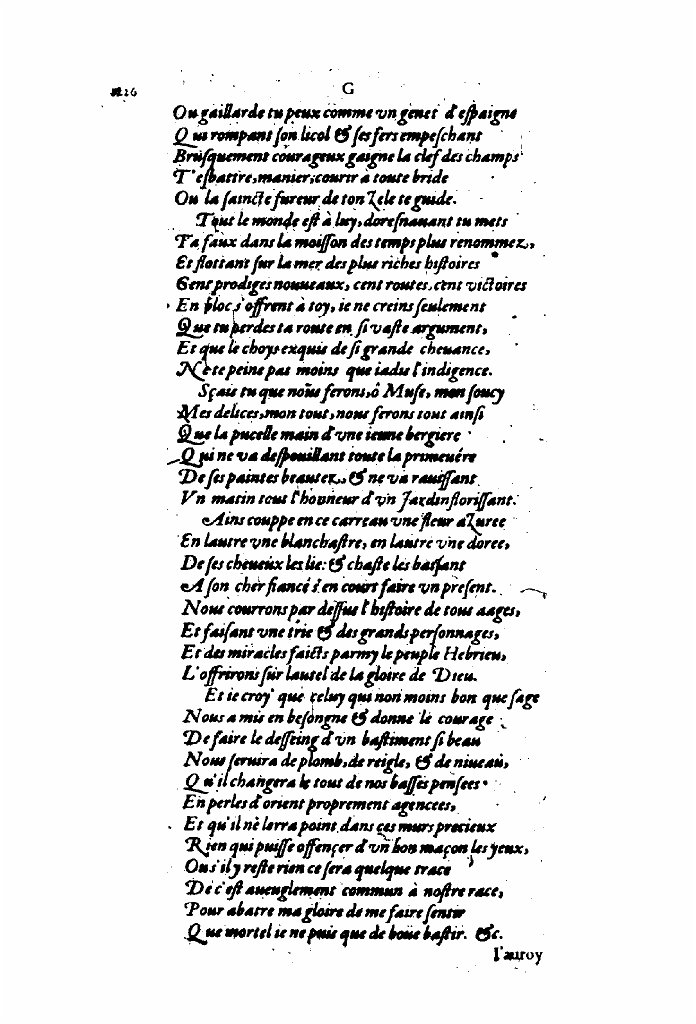 226 G
Ou gaillarde tu peux comme vn genet d'eſpaigne
Qui rompant ſon licol & ſes fers empeſchant
Bruſquement courageux gaigne la clef des champs
T'eſbattre, manier, courir à toute bride
Ou la ſaincte fureur de ton Zele te guide.
Tout le monde eſt à luy, doreſnauant tu mets
Ta faux dans la moiſſon des temps plus renommez,
Et flottant ſur la mer des plus riches hiſtoires
Cent prodiges nouueaux, cent routes, cent victoires
En bloc s'offrent à toy, ie ne creins ſeulement
Que tu perdes ta route en ſi vaſte argument,
Et que le choys exquis de ſi grande cheuance,
Ne te peine pas moins que iadis l'indigence.
Sçais tu que nous ferons, ô Muſe, mon ſoucy
Mes delices, mon tout, nous ferons tout ainſi
Que la pucelle main d'vne ieune bergiere
Qui ne va deſpouillant toute la primeuére
De ſes paintes beautez, & ne va rauiſſant
Vn matin tous l'honneur d'vn Jardin floriſſant.
Ains couppe en ce carreau vne fleur aZuree
En lautre vne blanchaſtre, en lautre vne doree,
De ſes cheueux les lie: & chaſte les baiſant
A ſon cher fiancé s'en court faire vn preſent.
Nous courrons par deſſus l'hiſtoire de tous aages,
Et faiſant vne trie & des grands perſonnages,
Et des miracles faicts parmy le peuple Hebrieu,
L'offrirons ſur lautel de la gloire de Dieu.
Et ie croy que celuy qui non moins bon que ſage
Nous a mis en beſongne & donne le courage
De faire le deſſeing d'vn baſtiment ſi beau
Nous ſeruira de plomb, de reigle, & de niueau,
Qu'il changera le tout de nos baſſes penſees
En perles d'orient proprement agencees,
Et qu'il ne lerra point dans ces murs precieux
Rien qui puiſſe offençer d'vn bon maçon les yeux,
Ou s'il y reſte rien ce ſera quelque trace
De c'eſt aueuglement commun à noſtre race,
Pour abatre ma gloire de me faire ſentir
Que mortel ie ne puis que de boue baſtir. &c.
I'auroy